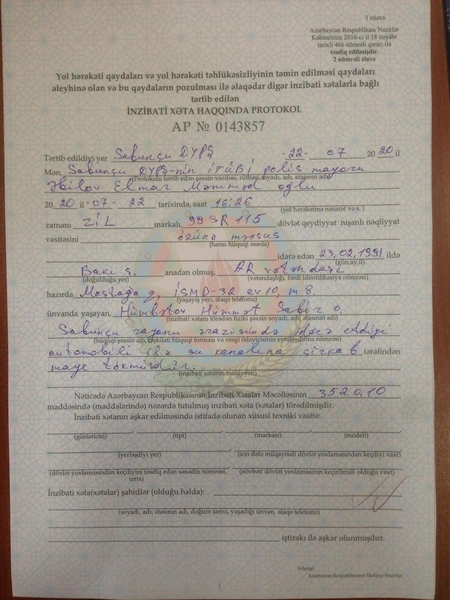 1 nüsxə
Azərbaycan Respublikası Nazirlər
Kabinetinin 2016-cı il 18 noyabr
tarixli 466 nömrəli qərarı ilə
təsdiq edilmişdir.
2 nömrəli əlavə
Yol hərəkəti qaydaları və yol hərəkəti təhlükəsizliyinin təmin edilməsi qaydaları
əleyhinə olan və bu qaydaların pozulması ilə əlaqədar digər inzibati xətalarla bağlı
tərtib edilən
İNZİBATİ XƏTA HAQQINDA PROTOKOL
AP № 0143857
Tərtib edildiyi yer Sabunçu RYPŞ -22- 07 2020 il
Mən, Sabunçu RYPŞ-nin polis mayoru
(Protokolu tərtib edən şəxsin vəzifəsi, rütbəsi, soyadı, adı, atasının adı)
Əbilov Elmar Məmməd oğlu
2020 il -07- 22 tarixində, saat 16:26
(yol hərəkətinə nəzarət və s.)
zamanı ZİL markalı, 99 SR 115 dövlət qeydiyyat nişanlı nəqliyyat
vasitəsini özünə məxsus
(hansı hüquqi əsasla)
idarə edən 23,02,1991 ildə
(gün, ay, il)
Bakı ş. anadan olmuş, AR vətəndaşı
(doğulduğu yer) (vətəndaşlığı, fərdi identifikasiya nömrəsi)
hazırda Maştağa q. ev 10 m 8.
(yaşayış yeri, əlaqə telefonu)
ünvanda yaşayan, Hümbətov Hümmət Sabir o.
(İnzibati xətanı törədən fiziki şəxsin soyadı, adı, atasının adı)
Sabunçu rayonu ərazisində idarə etdiyi
(hüquqi şəxsin adı, təşkilati hüquqi forması və vergi ödəyicisinin eyniləşdirmə nömrəsi)
avtomobili ilə su kanalına çirkab tərəfindən
maye tökmüşdür.
(inzibati xətanın mahiyyəti)
Nəticədə Azərbaycan Respublikasının İnzibati Xətalar Məcəlləsinin 352.0.10
maddəsində (maddələrində) nəzərdə tutulmuş inzibati xəta (xətalar) törədilmişdir.
İnzibati xətanın aşkar edilməsində istifadə olunan xüsusi texniki vasitə:
(göstəricisi) (tipi) (markası) (modeli)
(yerləşdiyi yer) (son dəfə müqayisəli dövlət yoxlamasından keçdiyi vaxt)
(dövlət yoxlamasından keçdiyini təsdiq edən sənədin nömrəsi, tarixi) (növbəti dövlət yoxlamasının keçirilməli olduğu vaxt)
İnzibati xəta(xətalar) şahidlər (olduğu halda):
(soyadı, adı, atasının adı, doğum tarixi, yaşadığı ünvan, əlaqə telefonu)
iştirakı ilə aşkar olunmuşdur.